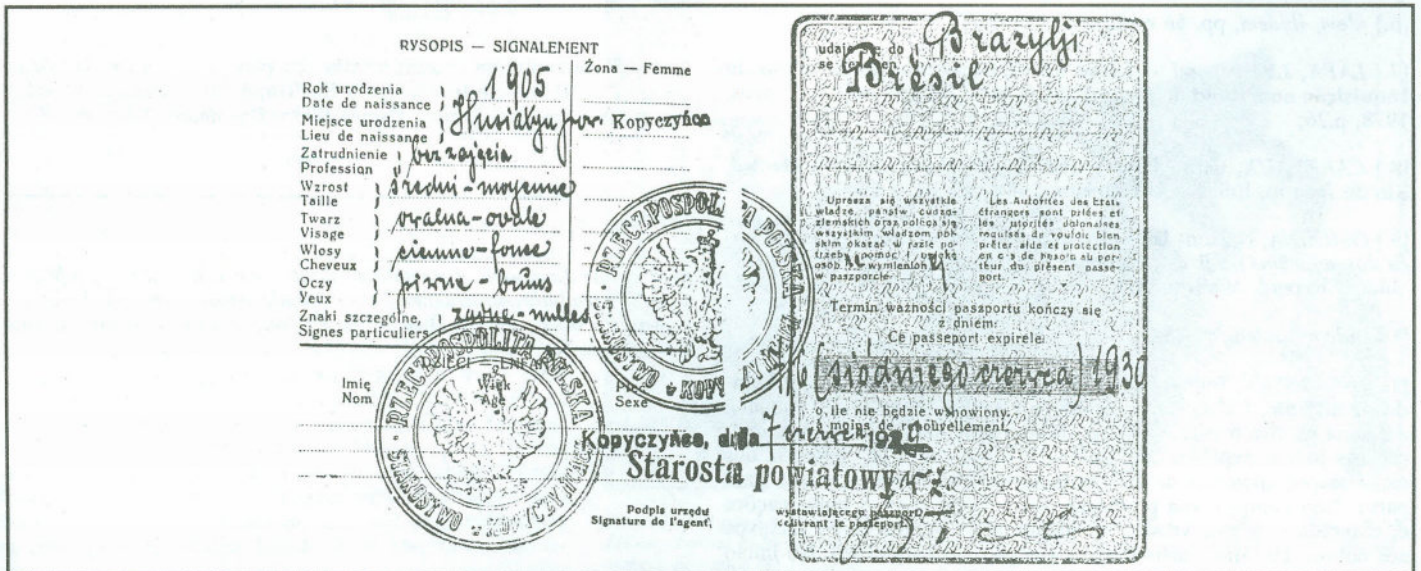 RYSOPIS — SIGNALEMENT
Żona — Femme
Rok urodzenia
Date de naissance
1905
Miejsce urodzenia
Lieu de naissance
Husiatyn pow. Kopyczyńce
Zatrudnienie
Profession
bez zajęcia
Wzrost
Taille
średni - moyenne
Twarz
Visage
owalna - ovale
Włosy
Cheveux
ciemne - fonse
Oczy
Yeux
piwne - bruns
Znaki szczególne,
Signes particuliers
żadne - nulles
DZIECI — ENFANTS
Imię
Nom
Wiek
Age
Płeć
Sexe
RZECZPOSPOLITA POLSKA
RZECZPOSPOLITA POLSKA
STAROSTWO
Kopyczyńce, dnia 7 czerwca 1929
Starosta powiatowy
Podpis urzędu
Signature de l'agent,
wystawiającego paszport
udaje się do
se rend en
Brazylji
Brésil
Uprasza się wszystkie
władze, państw cudzo-
ziemskich oraz poleca się
wszystkim władzom pol-
skim okazać w razie po-
trzeby pomoc i opiekę
osobie wymienionej
w paszporcie
Les Autorités des Etats
étrangers sont priées et
les autorités polonaises
requises de vouloir bien
prêter aide et protection
en cas de besoin au por-
teur du présent passe-
port.
Termin ważności paszportu kończy się
z dniem:
Ce passeport expirele
(siódmego czerwca) 1930
o ile nie będzie wznowiony.
à moins de renouvellement.